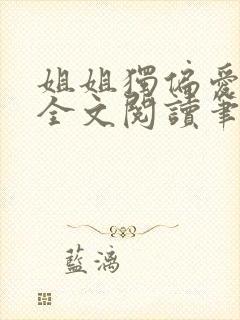 姐姐獨偏愛
全文閱讀筆
藍漓